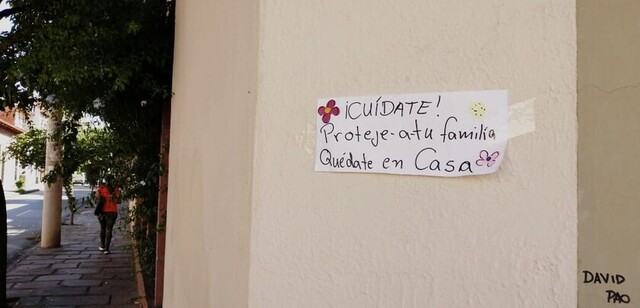 ¡CUÍDATE!
Proteje-a tu familia
Quédate en Casa
DAVID
PAO